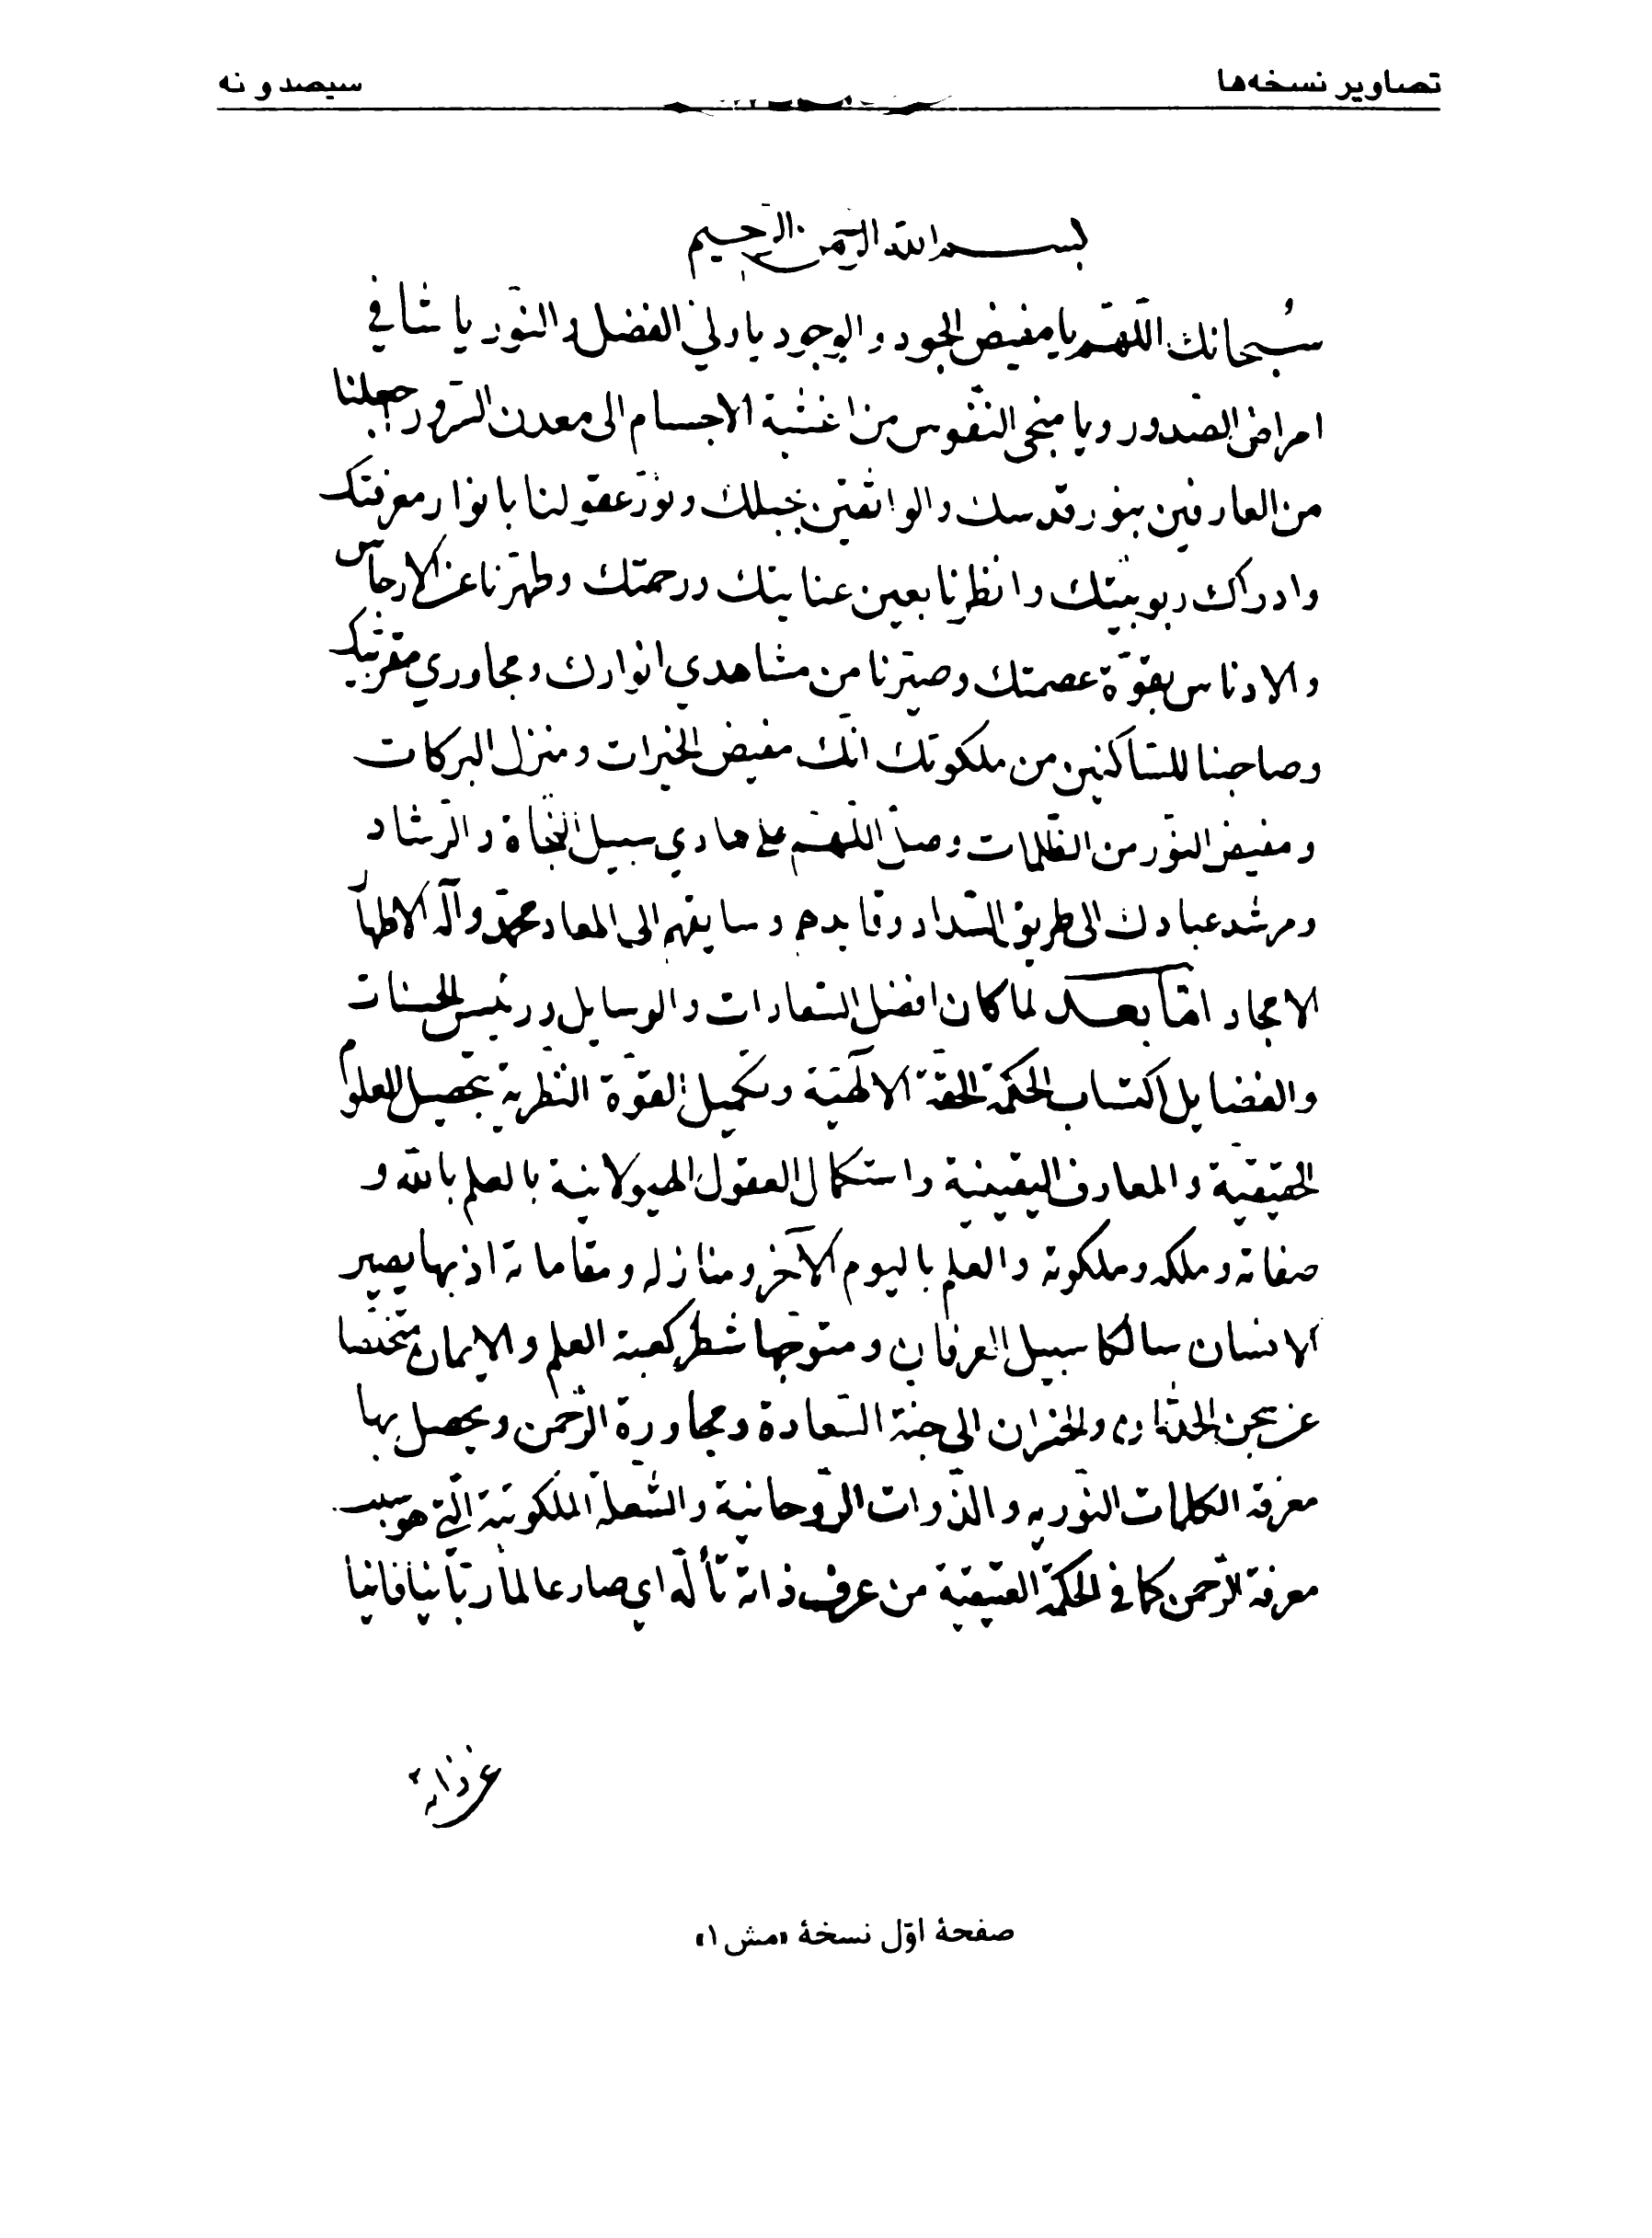 تصاویر نسخه‌ها
سیصد و نه
بسم الله الرحمن الرحیم
سُبحانك اللّهمّ يا مفيض الجود و الوجود يا ولي الفضل و النّور يا شافي
امراض الصّدور و يا منجى النّفوس من اغشية الاجسام الى معدن السّرور اجعلنا
من العارفين بنور قدسك و الواثقين بحبلك و نوّر عقولنا بانوار معرفتك
و ادراك ربوبيّتك و انظرنا بعين عنايتك و رحمتك و طهّرنا عن الارجاس
و الادناس بقوّة عصمتك و صيّرنا من مشاهدي انوارك و مجاوري مقرّبيك
و صاحبنا للسّاكنين من ملكوتك انّك مفيض الخيرات و منزل البركات
و مفيض النّور من الظّلمات و صلّ اللّهمّ على هادي سبيل النّجاة و الرّشاد
و مرشد عبادك الى طريق السّداد و قايدهم و سايقهم الى المعاد محمّد و آله الاطهار
الامجاد امّا بعد لما كان افضل السّعادات و الوسايل و رئيس الحسنات
و الفضايل اكتساب الحكمة الحقّة الالٓهيّة و تكميل القوّة النّظرية بتحصيل العلوم
الحقيقيّة و المعارف اليقينية و استكمال العقول الهيولانية بالعلم بالله و
صفاته و ملكه و ملكوته و العلم باليوم الآخر و منازله و مقاماته اذ بها يصير
الانسان سالكا سبيل العرفان و متوجّها شطر كعبة العلم و الايمان متخلّصا
عن سجن الحدثان و الخسران الى جنة السّعادة و مجاورة الرّحمن و يحصل بها
معرفة الكلمات النّوريه و الذّوات الرّوحانية و الشّعلة الملكوتيّة الّتي هو سبب
معرفة الرّحمن كما في الحكمة العتيقية من عرف ذاته تألّه اي صار عالما ربّانيا فانيا
عن ذاته
صفحهٔ اوّل نسخهٔ «مش ۱»